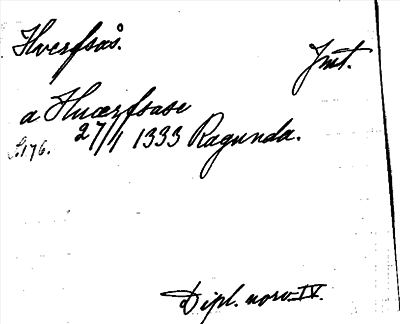 Hverfsås.
Jmt.
a Huærfsase
S.176. 27/1 1333 Ragunda.
Dipl. norv. IV.